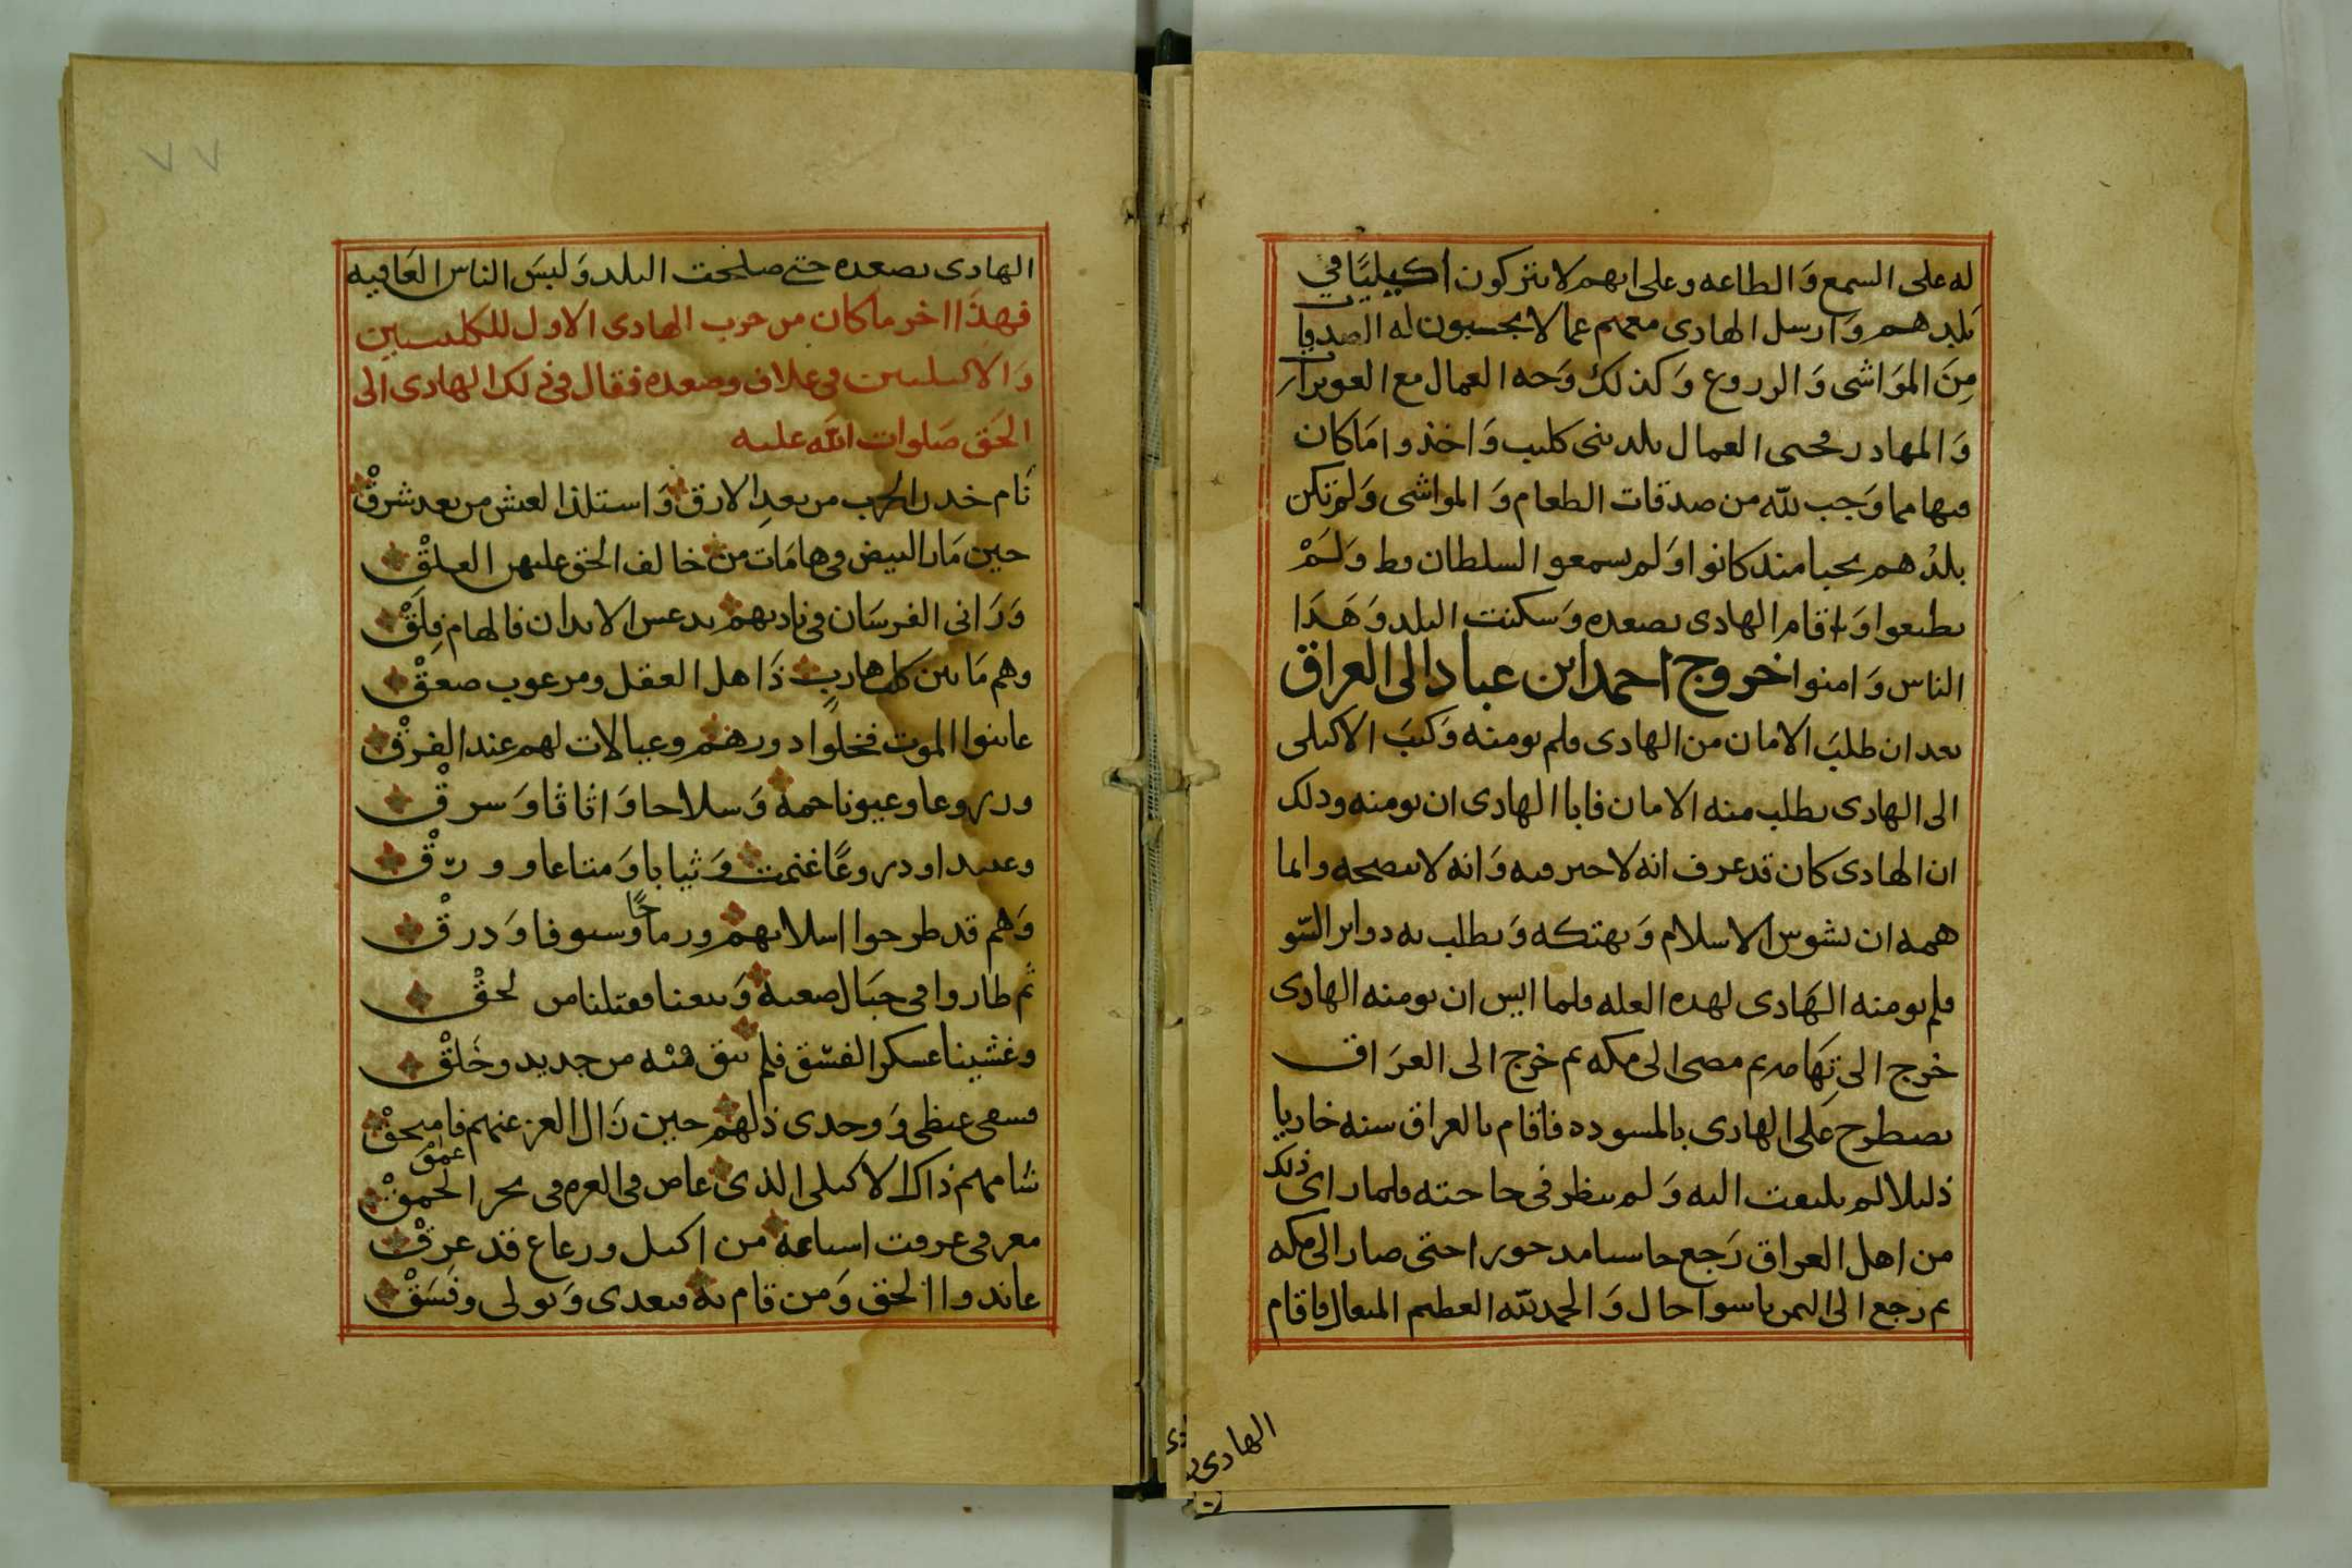 له على السمع وَالطاعه وعلى انهم لا يتركون اكيليًا في
بلدهم وَارسل الهادى معهم عمالا يحسبون له الصدقات
مِنَ الموَاشى وَالزروع وَكذلك وَجه العمال مع العويرات
وَالمهاذر فمحى العمال بلد بنى كليب وَاخذوا مَا كان
فيها مما وَجب للّه من صدقات الطعام وَالمواشى وَلم تكن
بلدُهم يجبا منذ كانوا وَلم يسمعوا السلطان قط وَلَمْ
يطيعوا وَاقام الهادى بصعده وَسكنت البلد وَهَدَا
الناس وَامنوا خروج احمد ابن عباد الى العراق
بعد ان طلبَ الامان من الهادى فلم يومنه وَكتبَ الاكيلى
الى الهادى يطلب منه الامان فابا الهادى ان يومنه وذلك
ان الهادى كان قد عرف انه لا خير فيه وَانه لا ينصحه وانما
همه ان يشوس الاسلام وَيهتكه وَيطلب به دواير السّو
فلم يومنه الهَادى لهذه العله فلما ايس ان يومنه الهادى
خرج الى تِهَامه ثم مضى الى مكه ثم خرج الى العرَاق
يصطرح عَلى الهادى بالمسوده فاقام بالعراق سنه خازيا
ذليلا لم يلتفت اليه وَلم ينظر في حاجته فلما راى ذلك
من اهل العراق رَجع خاسيا مدحورا حتى صار الى مكه
ثم رجع الى اليمن باسوا حال وَالحمد للّه العظيم المتعال فاقام
الهادى
الهادى بصعده حتى صلحت البلد وَلبسَ الناس العَافيه
فهذَا اخر ما كان من حرب الهادى الاول للكلبيين
وَالاكيليين في علاف وصعده فقال في ذلك الهادى الى
الحَق صَلوات اللّه عليه
نَام خدن الحرب من بعدِ الارق وَاستلذ العيش من بعد شرقْ
حين مَار البيض في هامَات من خالف الحق عليهن العلقْ
وَرَانى الفرسَان في ناديهم يدعس الابدان فالهام فِلَقْ
وهم مَا بين كل هاربٍ ذَاهل العقل ومرعوب صعقْ
عاينوا الموت فخلوا دورهم وعيالات لهم عند الفرقْ
ودروعا وعيونا جمة وَسلاحا وَاثاثا وَسرقْ
وعبيدا ودروعًا غنمت وَثيابا وَمتاعا وورقْ
وَهم قد طرحوا اسلابهم ورماحًا وسيوفا وَدرقْ
ثم طاروا في جبَال صعبة وَتبعنا فقتلنا من لحقْ
وغشينا عسكر الفسّق فلم نبق منْه من جديد وخَلقْ
فسقى غيظى وَوجدى ذلهم حين زَال العز عنهم فامحقْ
شامهم ذاك الاكيلى الذى غاص في العزم في بحر الحمقْ
عمق
معرفى عرفت اسباعه من اكيل ورعاع قد عرِقْ
عاندوا الحق وَمن قام به فتعدى وَتولى وفسَقْ
٧٧